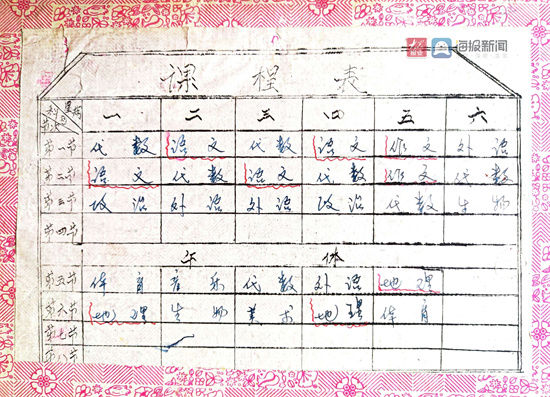 海报新闻
课程表
星期 科目 节次 一 二 三 四 五 六
第一节 代数 语文 代数 语文 作文 外语
第二节 语文 代数 语文 代数 作文 代数
第三节 政治 外语 外语 政治 代数 生物
第四节
午 休
第五节 体育 音乐 代数 外语 地理
第六节 地理 生物 美术 地理 体育
第七节
第八节